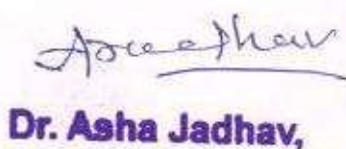 Dr. Asha Jadhav,